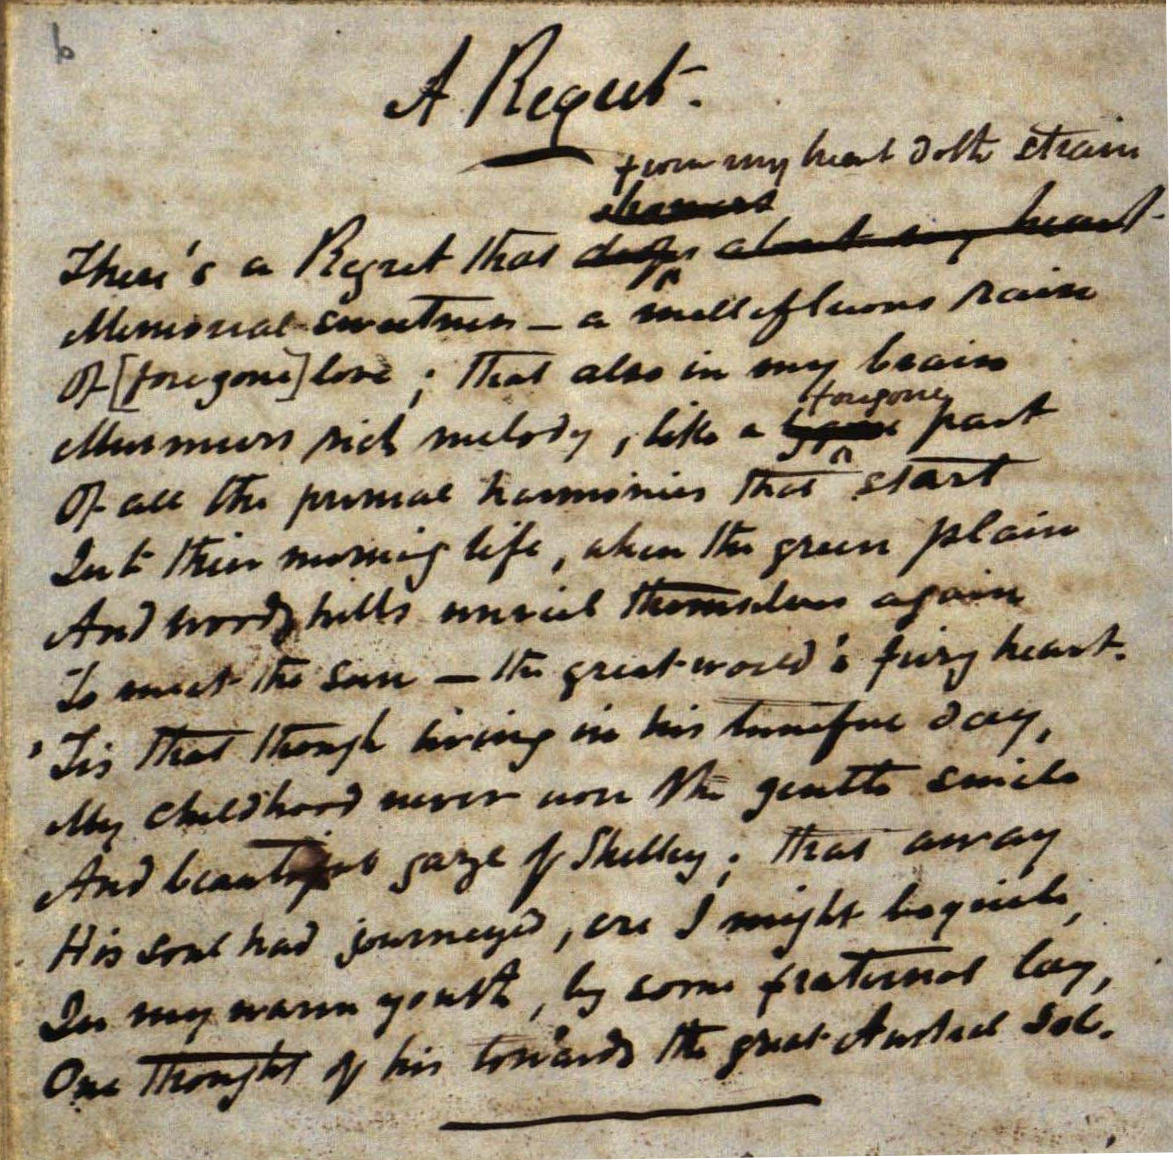 6
A Regret.
from my heart doth strain
showers
There's a Regret that drops about my heart
Memorial sweetness — a mellifluous rain
Of [foregone] love ; that also in my brain
foregone
Murmurs rich melody, like a part
Of all the primal harmonies that start
Into their morning life, when the green plain
And woody hills unveil themselves again
To meet the Sun — the great world's fiery heart.
'Tis that though living in his tuneful day,
My childhood never won the gentle smile
And beautiful gaze of Shelley ; that away
His soul had journeyed, ere I might beguile,
In my warm youth, by some fraternal lay,
One thought of his towards the great Austral Isle.